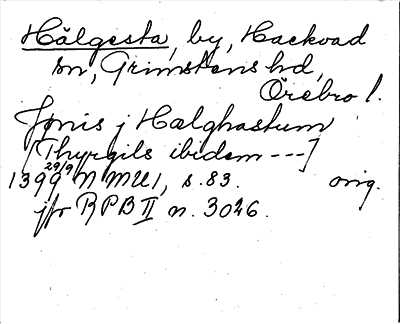 Hälgesta, by, Hackvad
sn, Grimstens hd,
Örebro l.
Jønis j Hælghastum
[Thyrgils ibidem ---]
1399 29/9 NMU1, s. 83. orig.
jfr RPB II n. 3046.